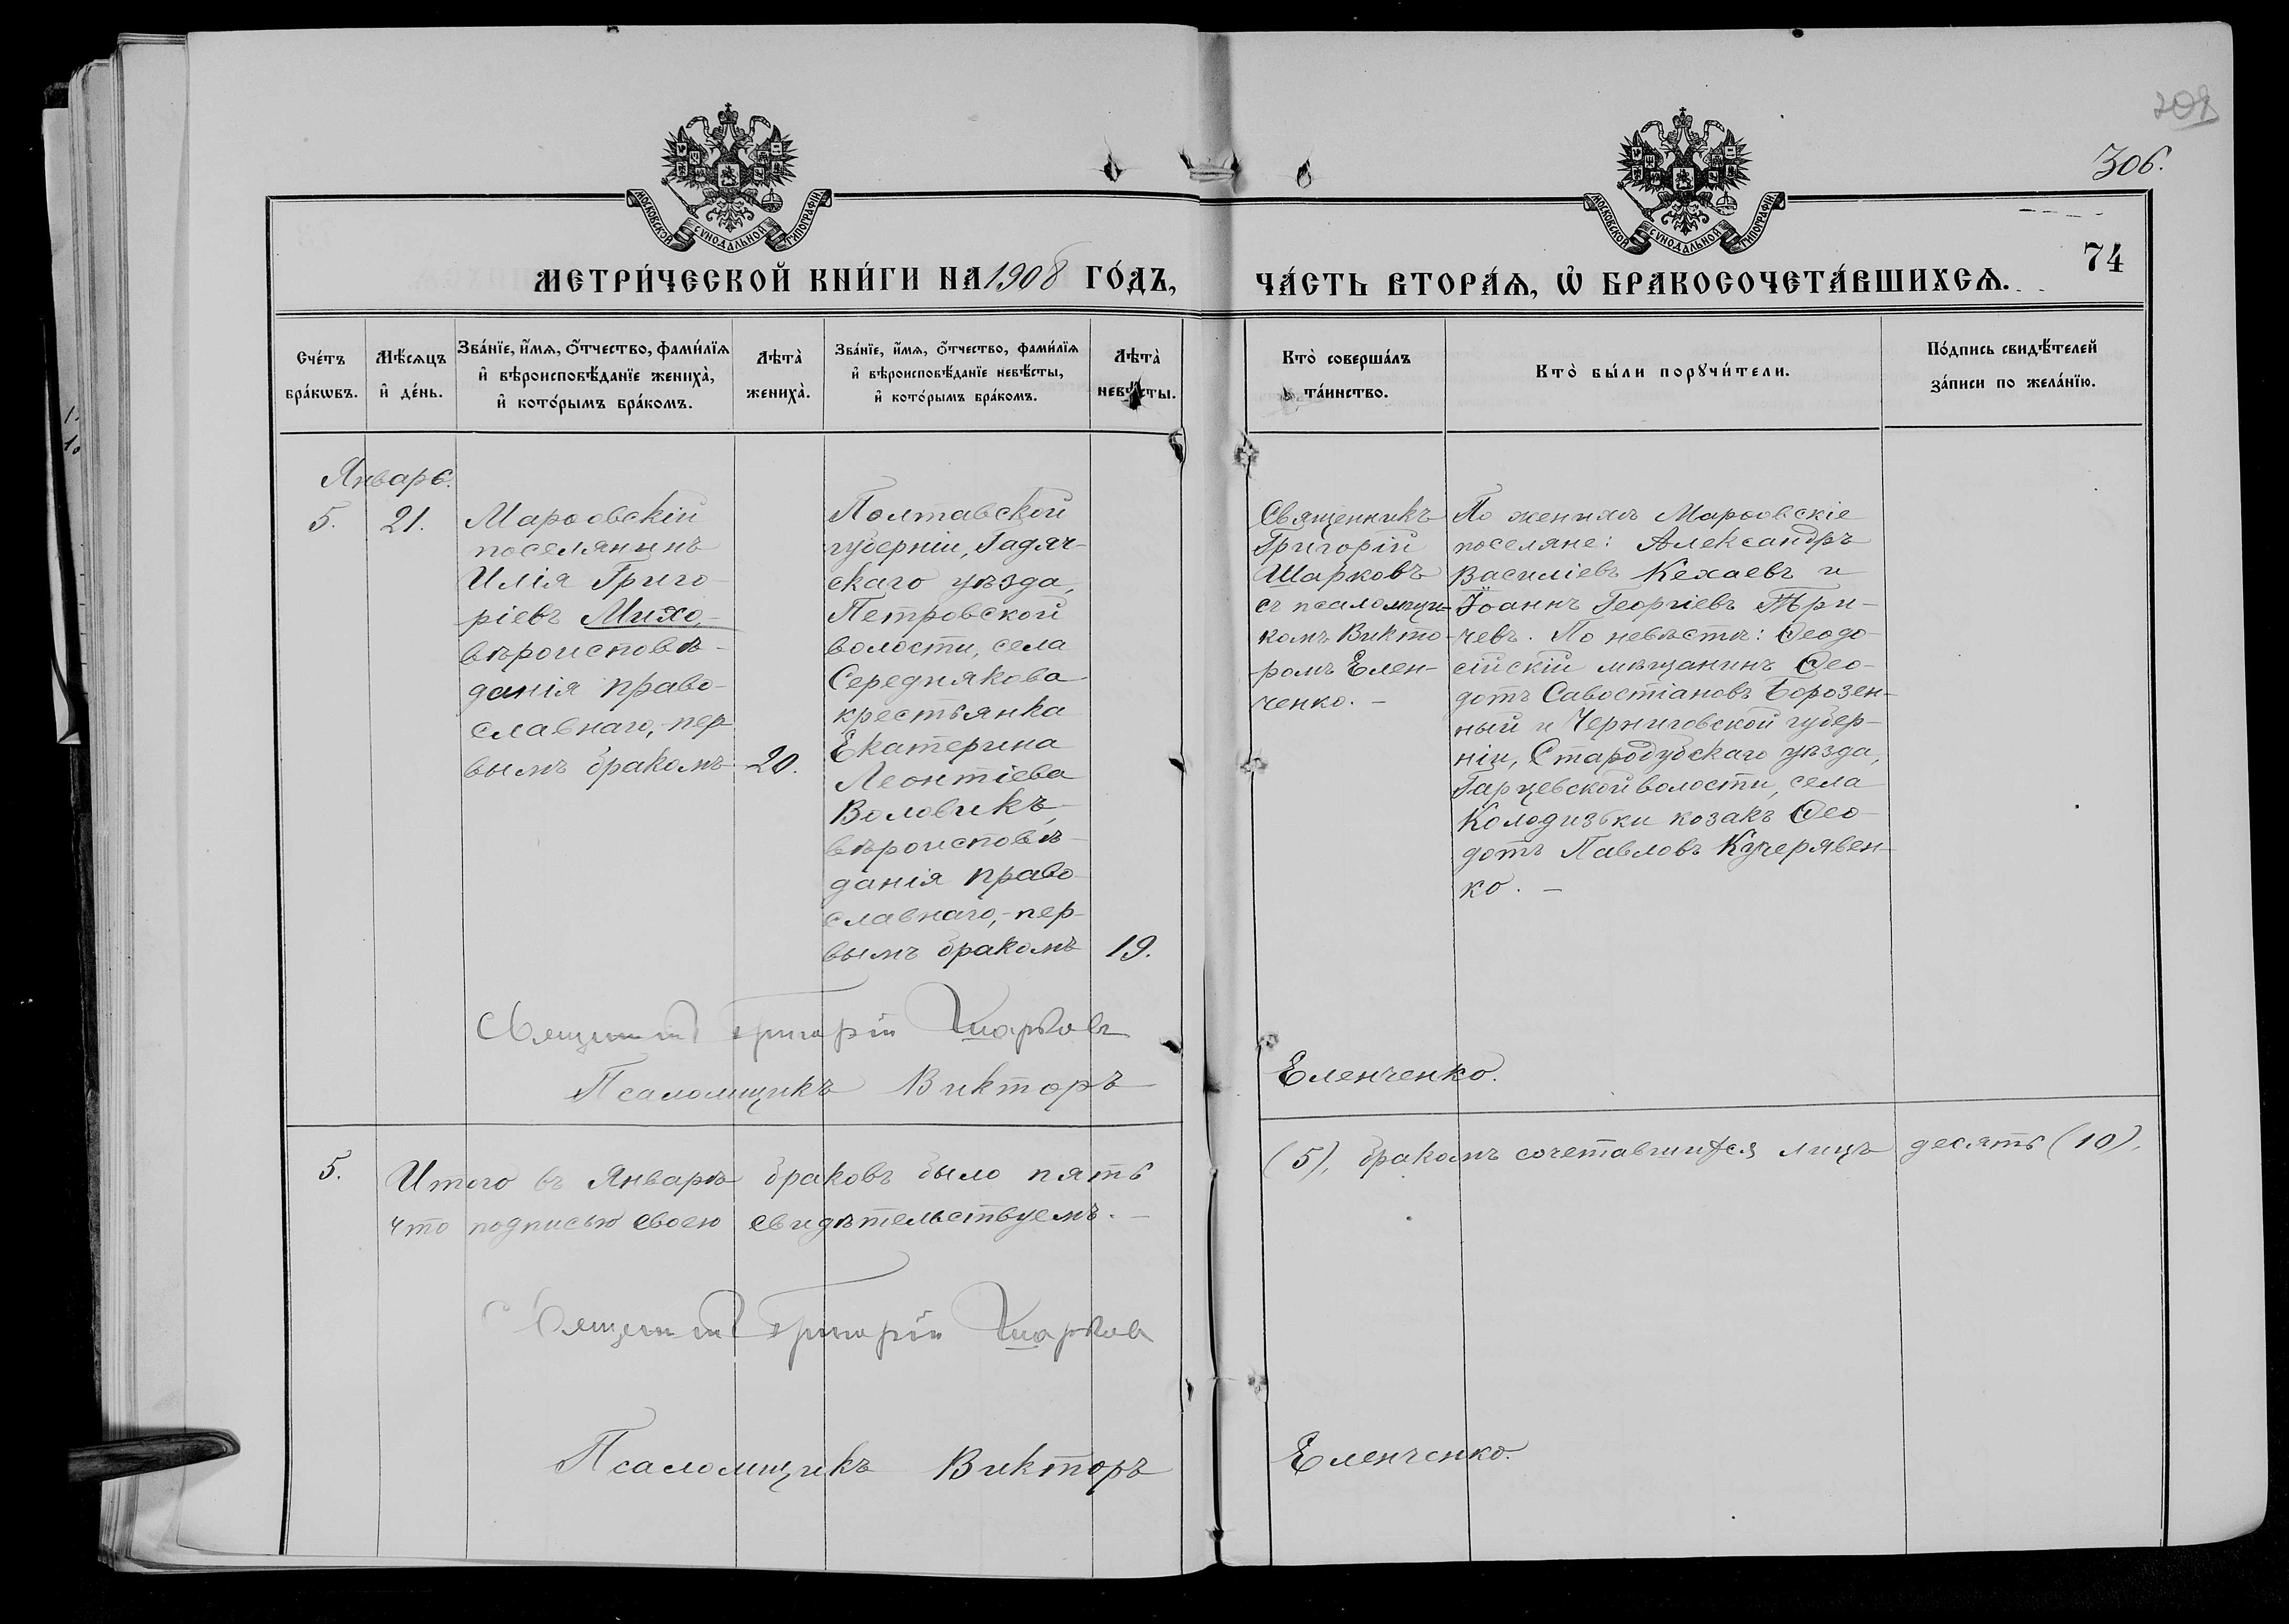 306.
74
МОСКОВСКОЙ СѴНОДАЛЬНОЙ ТИПОГРАФІИ
МОСКОВСКОЙ СѴНОДАЛЬНОЙ ТИПОГРАФІИ
МЕТРИ́ЧЕСКОЙ КНИ́ГИ НА 1908 ГО́ДЪ,
ЧА́СТЬ ВТОРА́Ѧ, Ѽ БРАКОСОЧЕТА́ВШИХСѦ.
Сче́тъ
бра́кѡвъ.
Мѣ́сѧцъ
и҆ де́нь.
Зва́нїе, и҆́мѧ, ѻ҆́тчество, фамѝлїѧ
и҆ вѣроисповѣ́данїе женихà,
и҆ кото́рымъ бра́комъ.
Лѣтà
женихà.
Зва́нїе, и҆́мѧ, ѻ҆́тчество, фами́лїѧ
и҆ вѣроисповѣ́данїе невѣ́сты,
и҆ кото́рымъ бра́комъ.
Лѣтà
невѣ́сты.
Ктò соверша́лъ
та́инство.
Ктò бы́ли порꙋчи́тели.
По́дпись свидѣ́телей
за́писи по жела́нїю.
Январь.
5.
21.
Марфовскій
поселянинъ
Илія Григо-
ріевъ Михо,-
вѣроисповѣ-
данія право-
славнаго,-пер-
вымъ бракомъ
20.
Полтавской
губерніи, Гадяч-
скаго уѣзда,
Петровской
волости, села
Середнякова
крестьянка
Екатерина
Леонтіева
Воловикъ,
вѣроисповѣ-
данія право-
славнаго,-пер-
вымъ бракомъ
19.
Священникъ
Григорій
Шарковъ
съ псаломщи-
комъ Викто-
ромъ Елен-
ченко.-
По женихѣ Марфовскіе
поселяне: Александръ
Василіевъ Кехаевъ и
Іоаннъ Георгіевъ Три-
чевъ. По невѣстѣ: Ѳеодо-
сійскій мѣщанинъ Ѳео-
дотъ Савостіановъ Борозен-
ный и Черниговской губер-
ніи, Стародубскаго уѣзда,
Гарцевской волости, села
Колодизьки козакъ Ѳео-
дотъ Павловъ Кучерявен-
ко.-
Священникъ Григорій Шарковъ
Псаломщикъ Викторъ Еленченко.
5. Итого въ Январѣ браковъ было пять (5), бракомъ сочетавшихся лицъ десять (10),
что подписью своею свидѣтельствуемъ.-
Священникъ Григорій Шарковъ
Псаломщикъ Викторъ Еленченко.